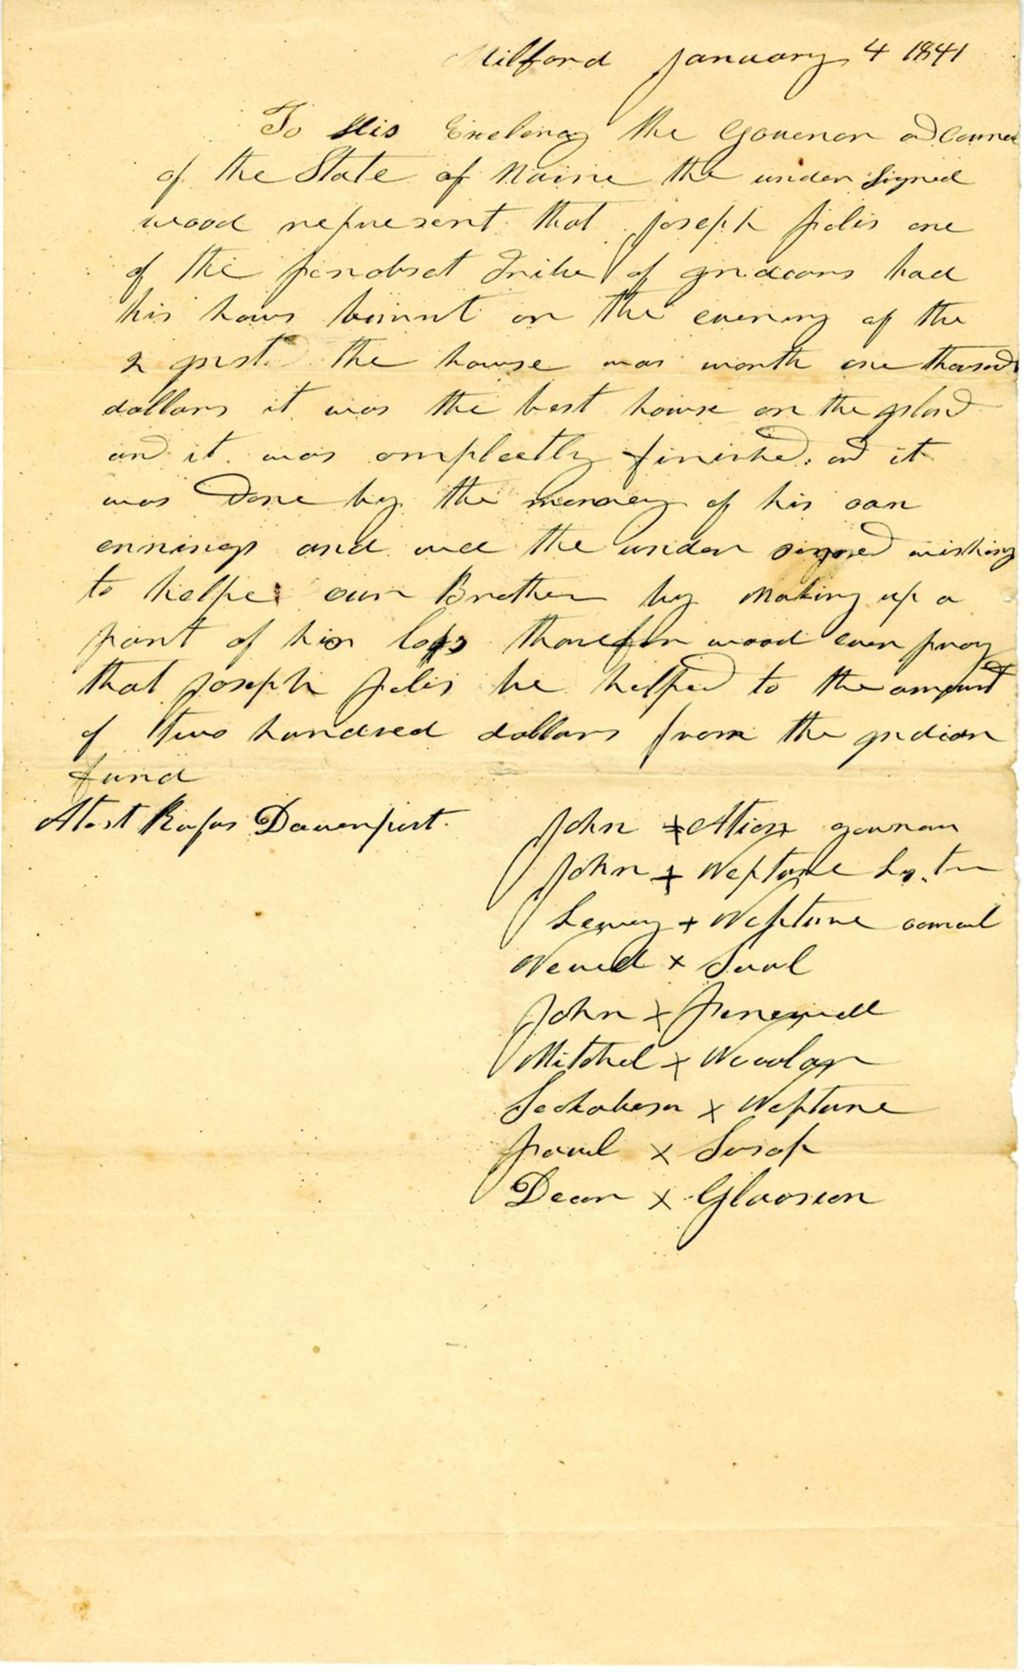 Milford January 4 1841
To His Exelency the Govenor and Councel
of the State of Maine the under Signed
wood represent that Joseph Polis one
of the penobscot Tribe of indians had
his hows burnt on the evening of the
2 inst the howse was worth one thousand
dollars it was the best howse on the island
and it was compleetly finished, and it
was Done by the money of his oan
ennings and wee the under signed wishing
to helpe our Brother by Making up a
part of his loss thorefor wood ever pray
that Joseph Polis be helped to the amount
of two hundred dollars from the indian
fund
Atest Rufus Davenport.
John + Attion govnor
John + Neptune
+ Neptune
x Saul
John x
Mitchel x
Sockabesn x Neptune
x
Dean x